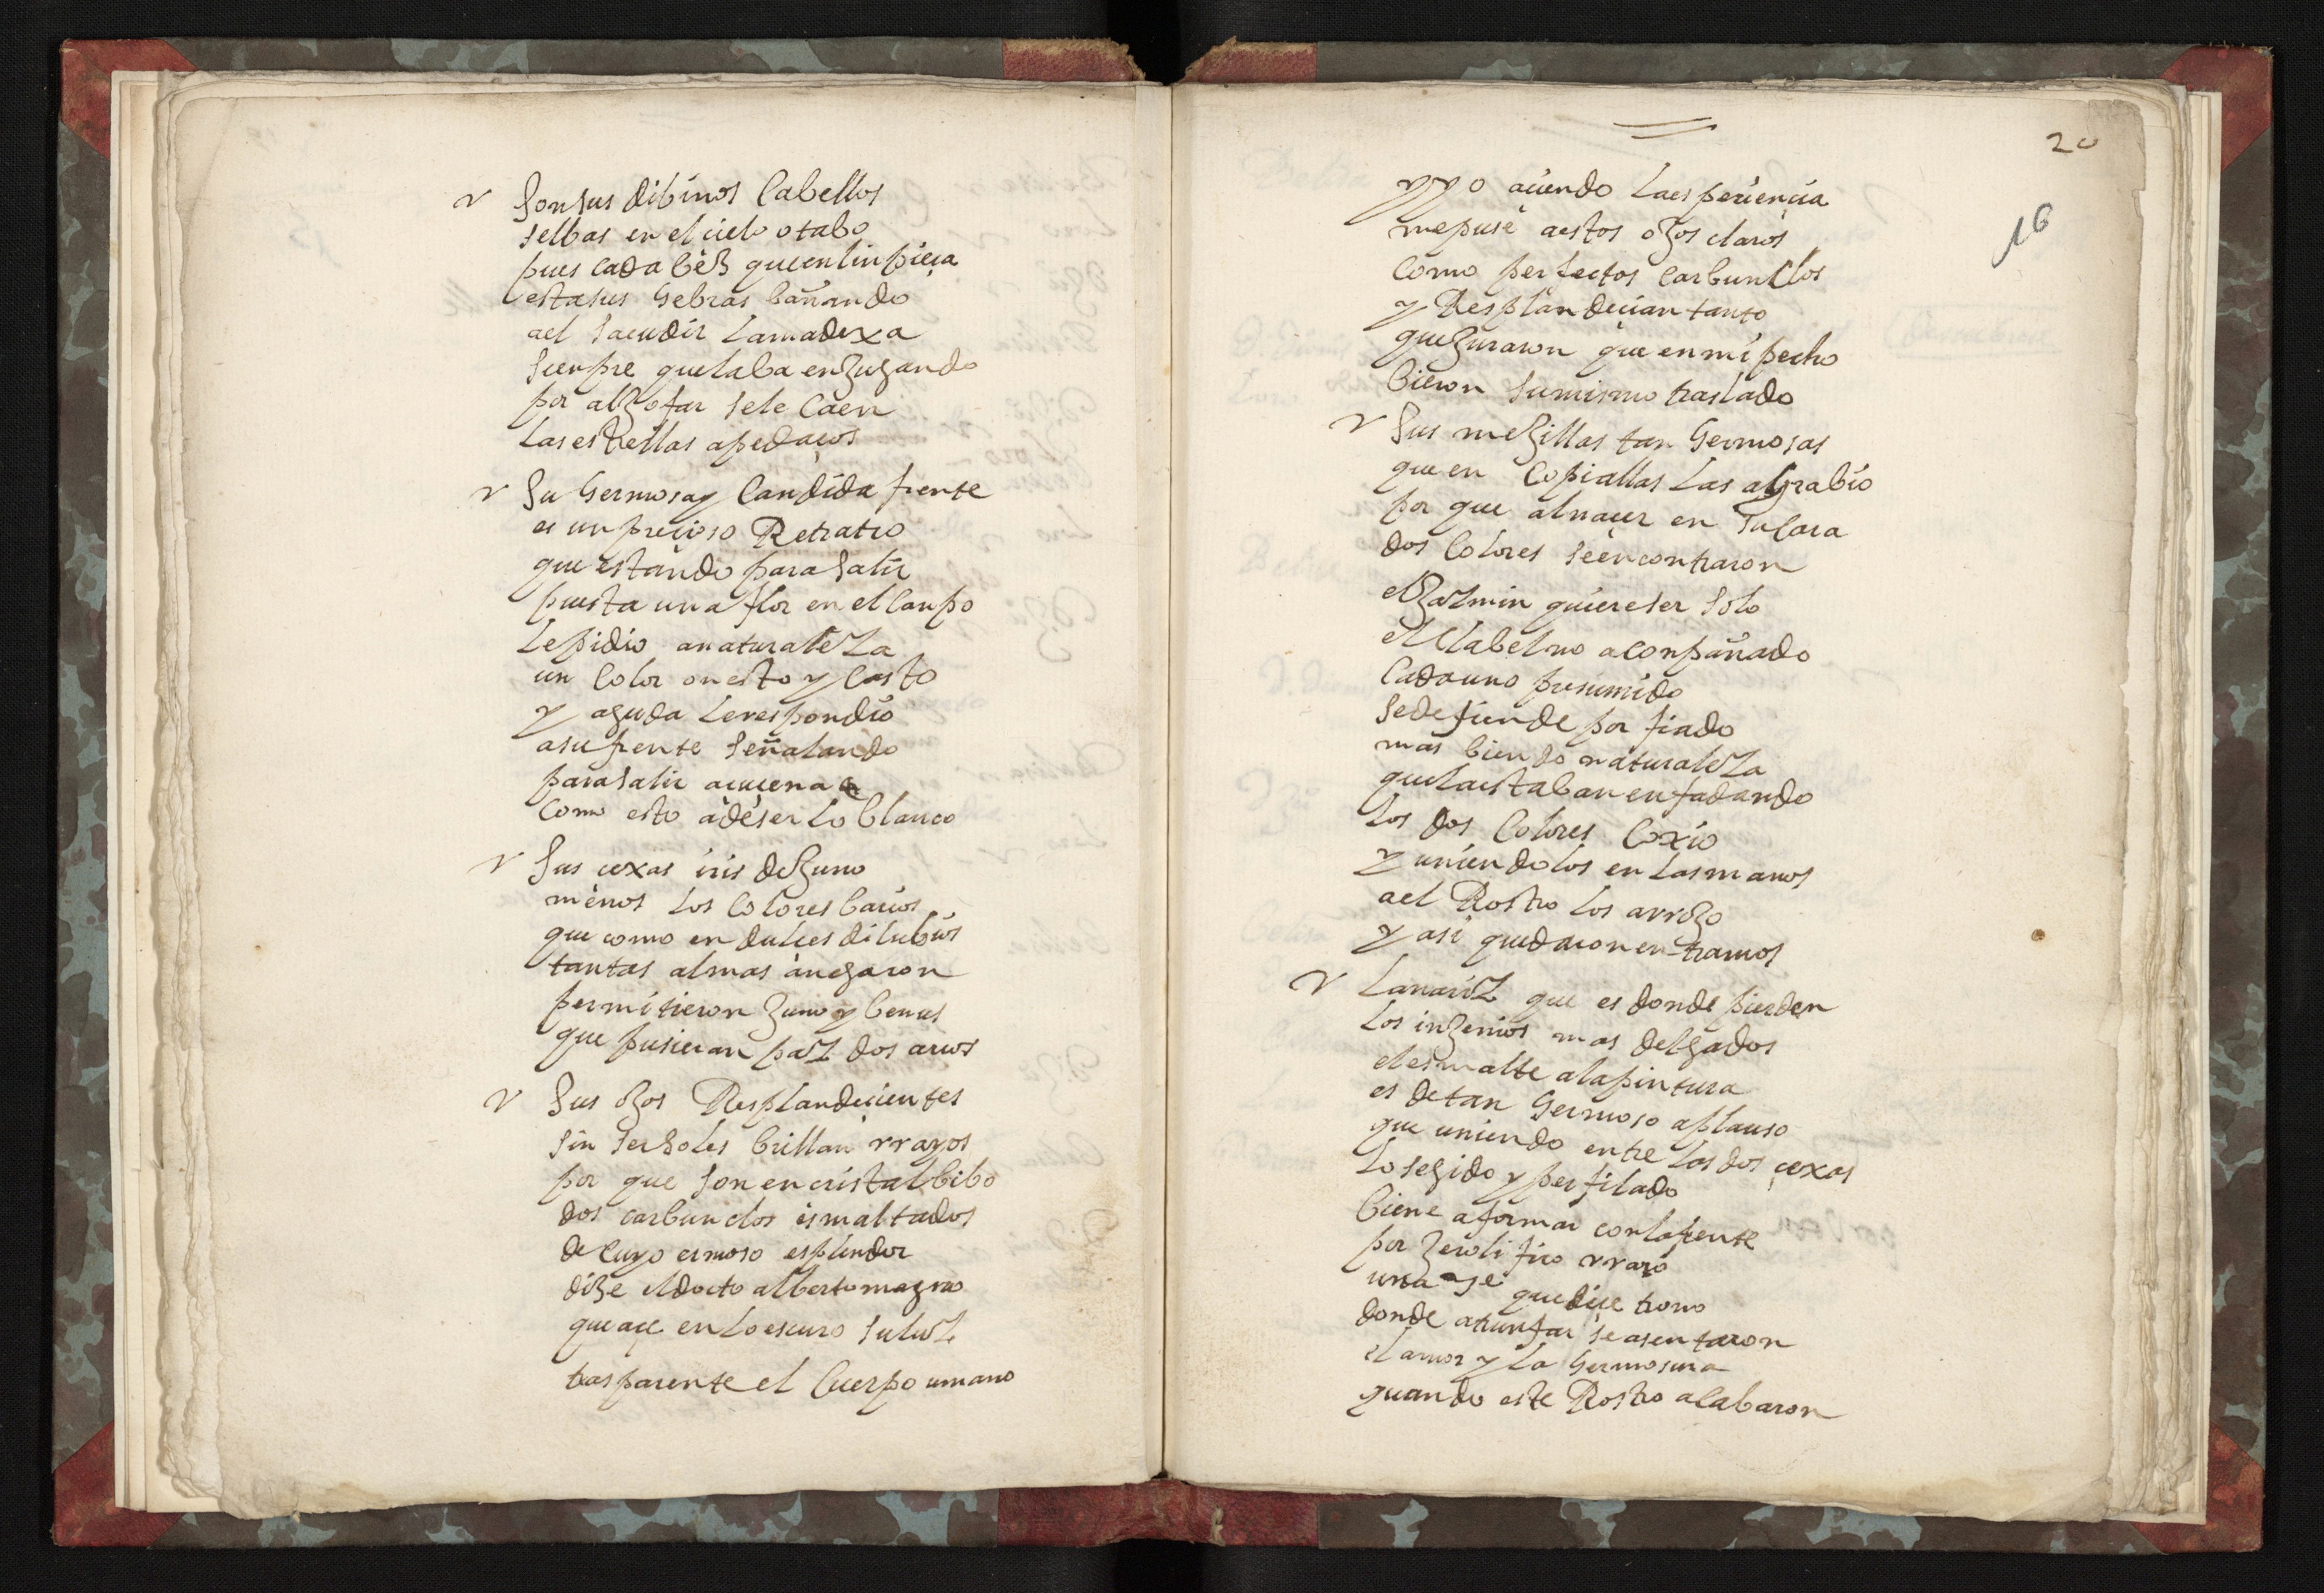 Son sus dibinos Cabellos
selbas en el cielo otabo
pues cada bez que en linpieça
esta sus hebras bañando
ael sacudir la madexa
sienpre que laba enjugando
por aljofar se le caen
las estrellas a pedaços
Su hermosa y Candida frente
es un precioso Retratro
que estando para salir
puesta una flor en el Canpo
le pidio a naturaleza
un Color onesto y Casto
y aguda le respondio
a su frente señalando
para salir açucena
Como esto a de ser lo blanco
Sus cexas iris de Juno
menos los Colores barios
que como en dulces dilubios
tantas almas anegaron
permitieron Juno y benus
que pusieran paz dos arcos
Sus ojos Resplandecientes
sin ser soles brillan rrayos
por que son en cristal bibo
dos carbunclos esmaltados
de Cuyo ermoso esplendor
dize el docto alberto magno
que açe en lo escuro su luz
trasparente el Cuerpo umano
20
16
y yo aciendo la esperiencia
me puse a estos ojos claros
como perfectos Carbunclos
y Resplandecian tanto
que juraron que en mi pecho
bieron su mismo traslado
Sus mejillas tan hermosas
que en Copiallas las agrabio
por que al naçer en su Cara
dos Colores se encontraron
el Jazmin quiere ser solo
el Clabel no aconpañado
Cada uno presumido
se defiende porfiado
mas biendo naturaleza
que la estaban enfadando
los dos Colores Coxio
y uniendolos en las manos
ael Rostro los arrojo
y asi quedaron entramos
La nariz que es donde pierden
los injenios mas delgados
el esmalte a la pintura
es de tan hermoso aplauso
que uniendo entre las dos çexas
lo segido y perfilado
biene a formar con la frente
por jerolifico rraro
una que dice trono
donde a triunfar se asentaron
el amor y la hermosura
quando este Rostro acabaron